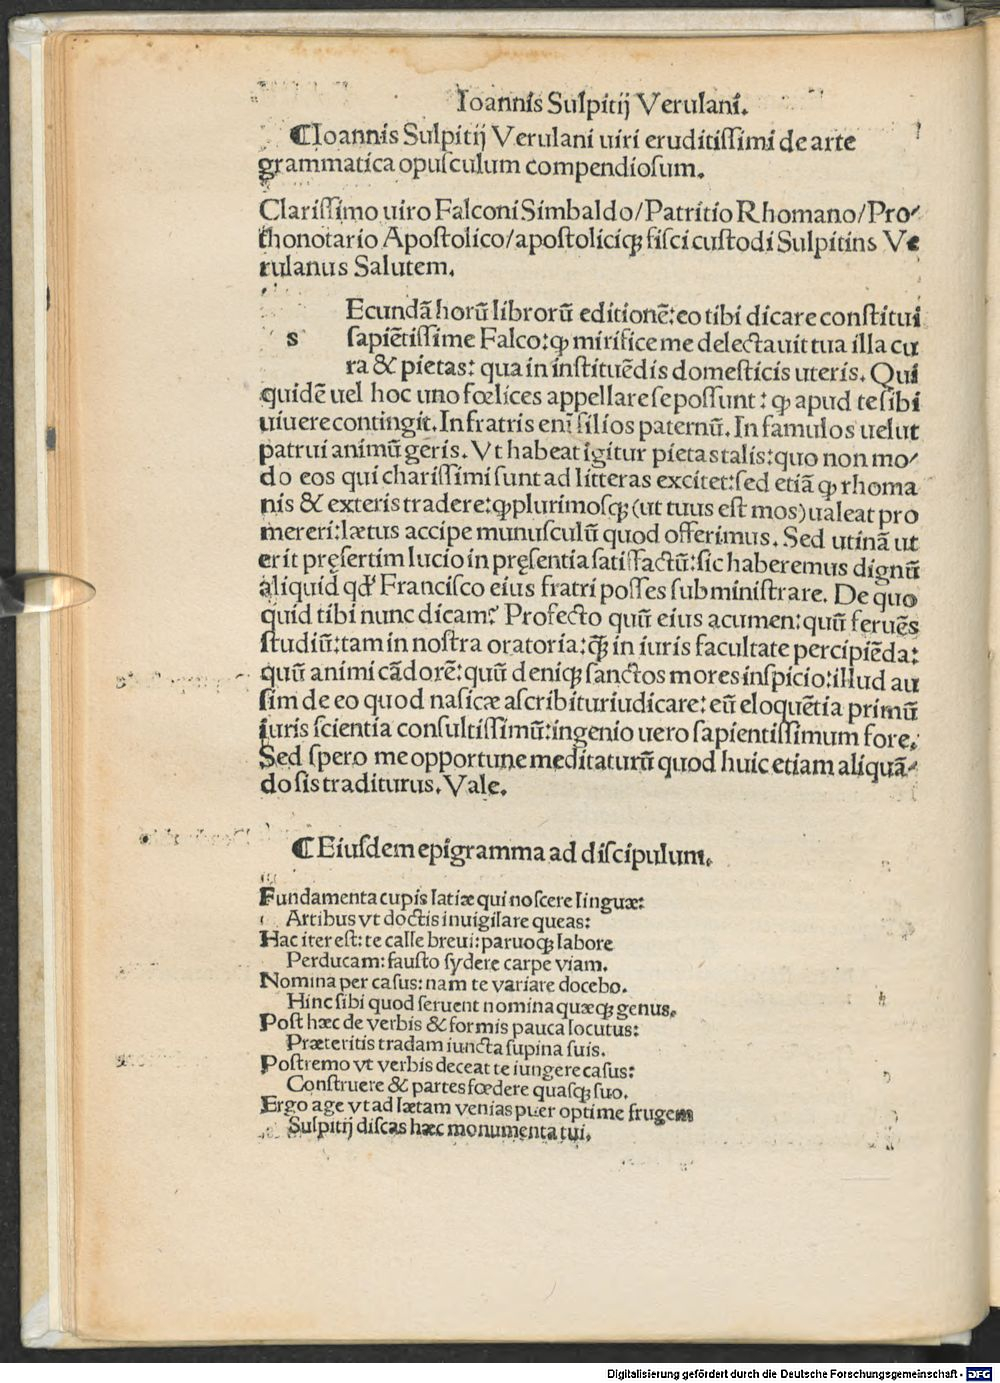 Ioannis Sulpitij Verulani.
⸿Ioannis Sulpitij Verulani uiri eruditissimi de arte
grammatica opusculum compendiosum.
Clarissimo uiro Falconi Simbaldo/Patritio Rhomano/Pro⸗
thonotario Apostolico/apostoliciqꝫ fisci custodi Sulpitius Ve
rulanus Salutem.
Ecundã horũ librorũ editionẽ: eo tibi dicare constitui
s sapiẽtissime Falco: ꝙ mirifice me delectauit tua illa cu
ra & pietas: qua in instituẽdis domesticis uteris. Qui
quidẽ uel hoc uno fœlices appellare se possunt: ꝙ apud te sibi
uiuere contingit. In fratris enĩ filios paternũ. In famulos uelut
patrui animũ geris. Vt habeat igitur pietas talis: quo non mo⸗
do eos qui charissimi sunt ad litteras excitet: sed etiã ꝙ rhoma
nis & exteris tradere: ꝙ plurimosqꝫ (ut tuus est mos) ualeat pro
mereri: lætus accipe munusculũ quod offerimus. Sed utinã ut
erit pręsertim lucio in pręsentia satisfactũ: sic haberemus dignũ
aliquid qd' Francisco eius fratri posses subministrare. De quo
quid tibi nunc dicam? Profecto quũ eius acumen: quũ feruẽs
studiũ: tam in nostra oratoria: ꝗ̃ in iuris facultate percipiẽda:
quũ animi cãdorẽ: quũ deniqꝫ sanctos mores inspicio: illud au
sim de eo quod nasicæ ascribitur iudicare: eũ eloquẽtia primũ
iuris scientia consultissimũ: ingenio uero sapientissimum fore.
Sed spero me opportune meditaturũ quod huic etiam aliquã⸗
do sis traditurus. Vale.
⸿Eiusdem epigramma ad discipulum.
Fundamenta cupis latiæ qui noscere linguæ:
Artibus vt doctis inuigilare queas:
Hac iter est: te calle breui: paruoqꝫ labore
Perducam: fausto sydere carpe viam.
Nomina per casus: nam te variare docebo.
Hinc sibi quod seruent nomina quæqꝫ genus.
Post hæc de verbis & formis pauca locutus:
Præteritis tradam iuncta supina suis.
Postremo vt verbis deceat te iungere casus:
Construere & partes fœdere quasqꝫ suo.
Ergo age vt ad lætam venias puer optime frugem
Sulpitij discas hæc monumenta tui.
Digitalisierung gefördert durch die Deutsche Forschungsgemeinschaft - DFG